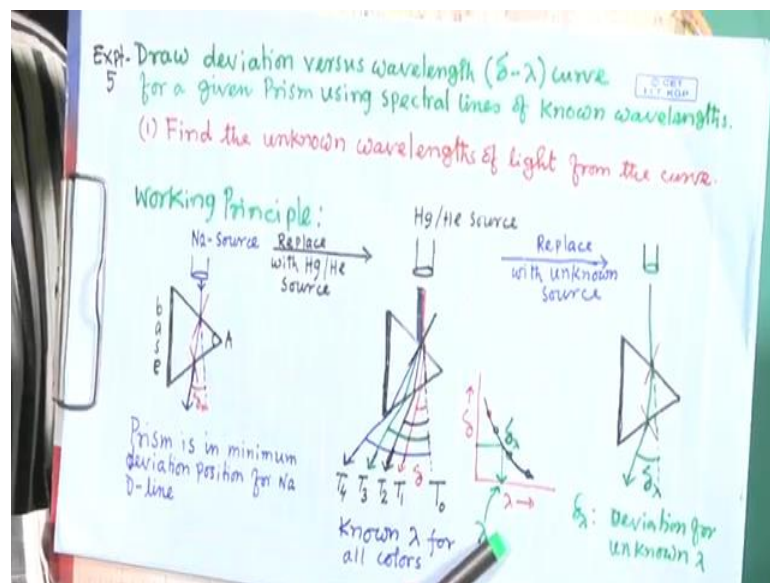 Expt. Draw deviation versus wavelength (δ-λ) curve
5 for a given Prism using spectral lines of known wavelengths.
© CET
I.I.T. KGP
(1) Find the unknown wavelengths of light from the curve.
Working Principle:
Na-Source
Replace
with Hg/He
Source
Hg/He Source
Replace
with unknown
Source
base
A
δ
Prism is in minimum
deviation position for Na
D-line
T4 T3 T2 T1 δ T0
Known λ for
all colors
δ
δλ
λ→
λ
δλ
δλ: Deviation for
unknown λ